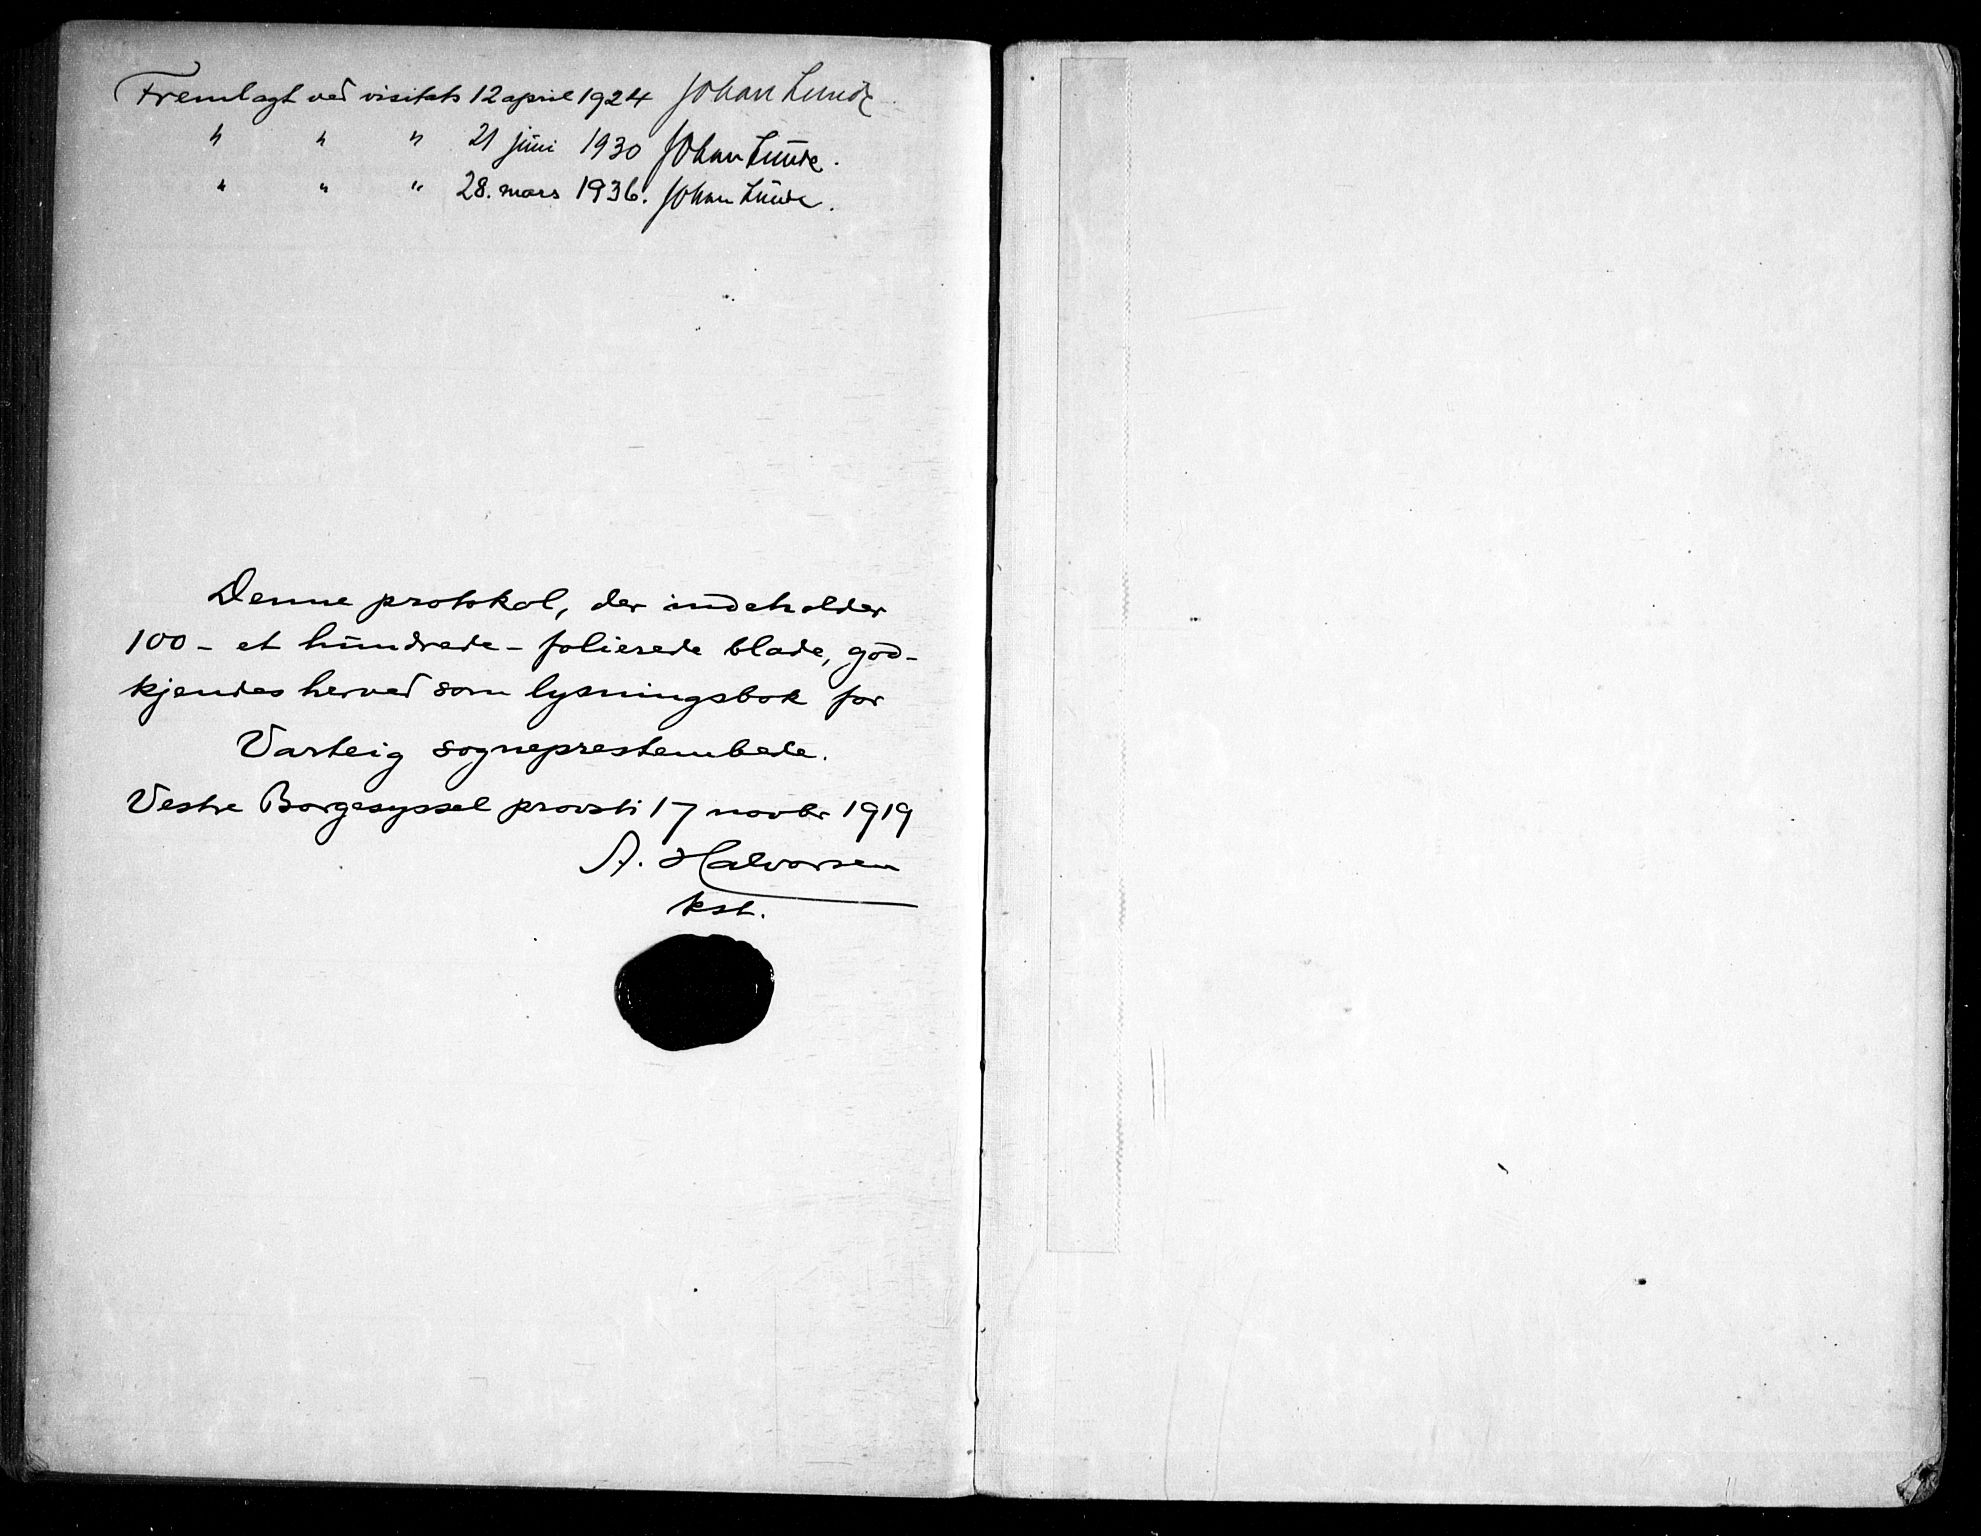 Fremlagt ved visitats 12 april 1924 Johan Lunde
" " " 21 juni 1930 Johan Lunde.
" " " 28. mars 1936. Johan Lunde.
Denne protokol, der indeholder
100 - et hundrede - folierede blade, god-
kjendes herved som lysningsbok for
Varteig sogneprestembede.
Vestre Borgesyssel provsti 17 novbr 1919
A. Halvorsen
kst.